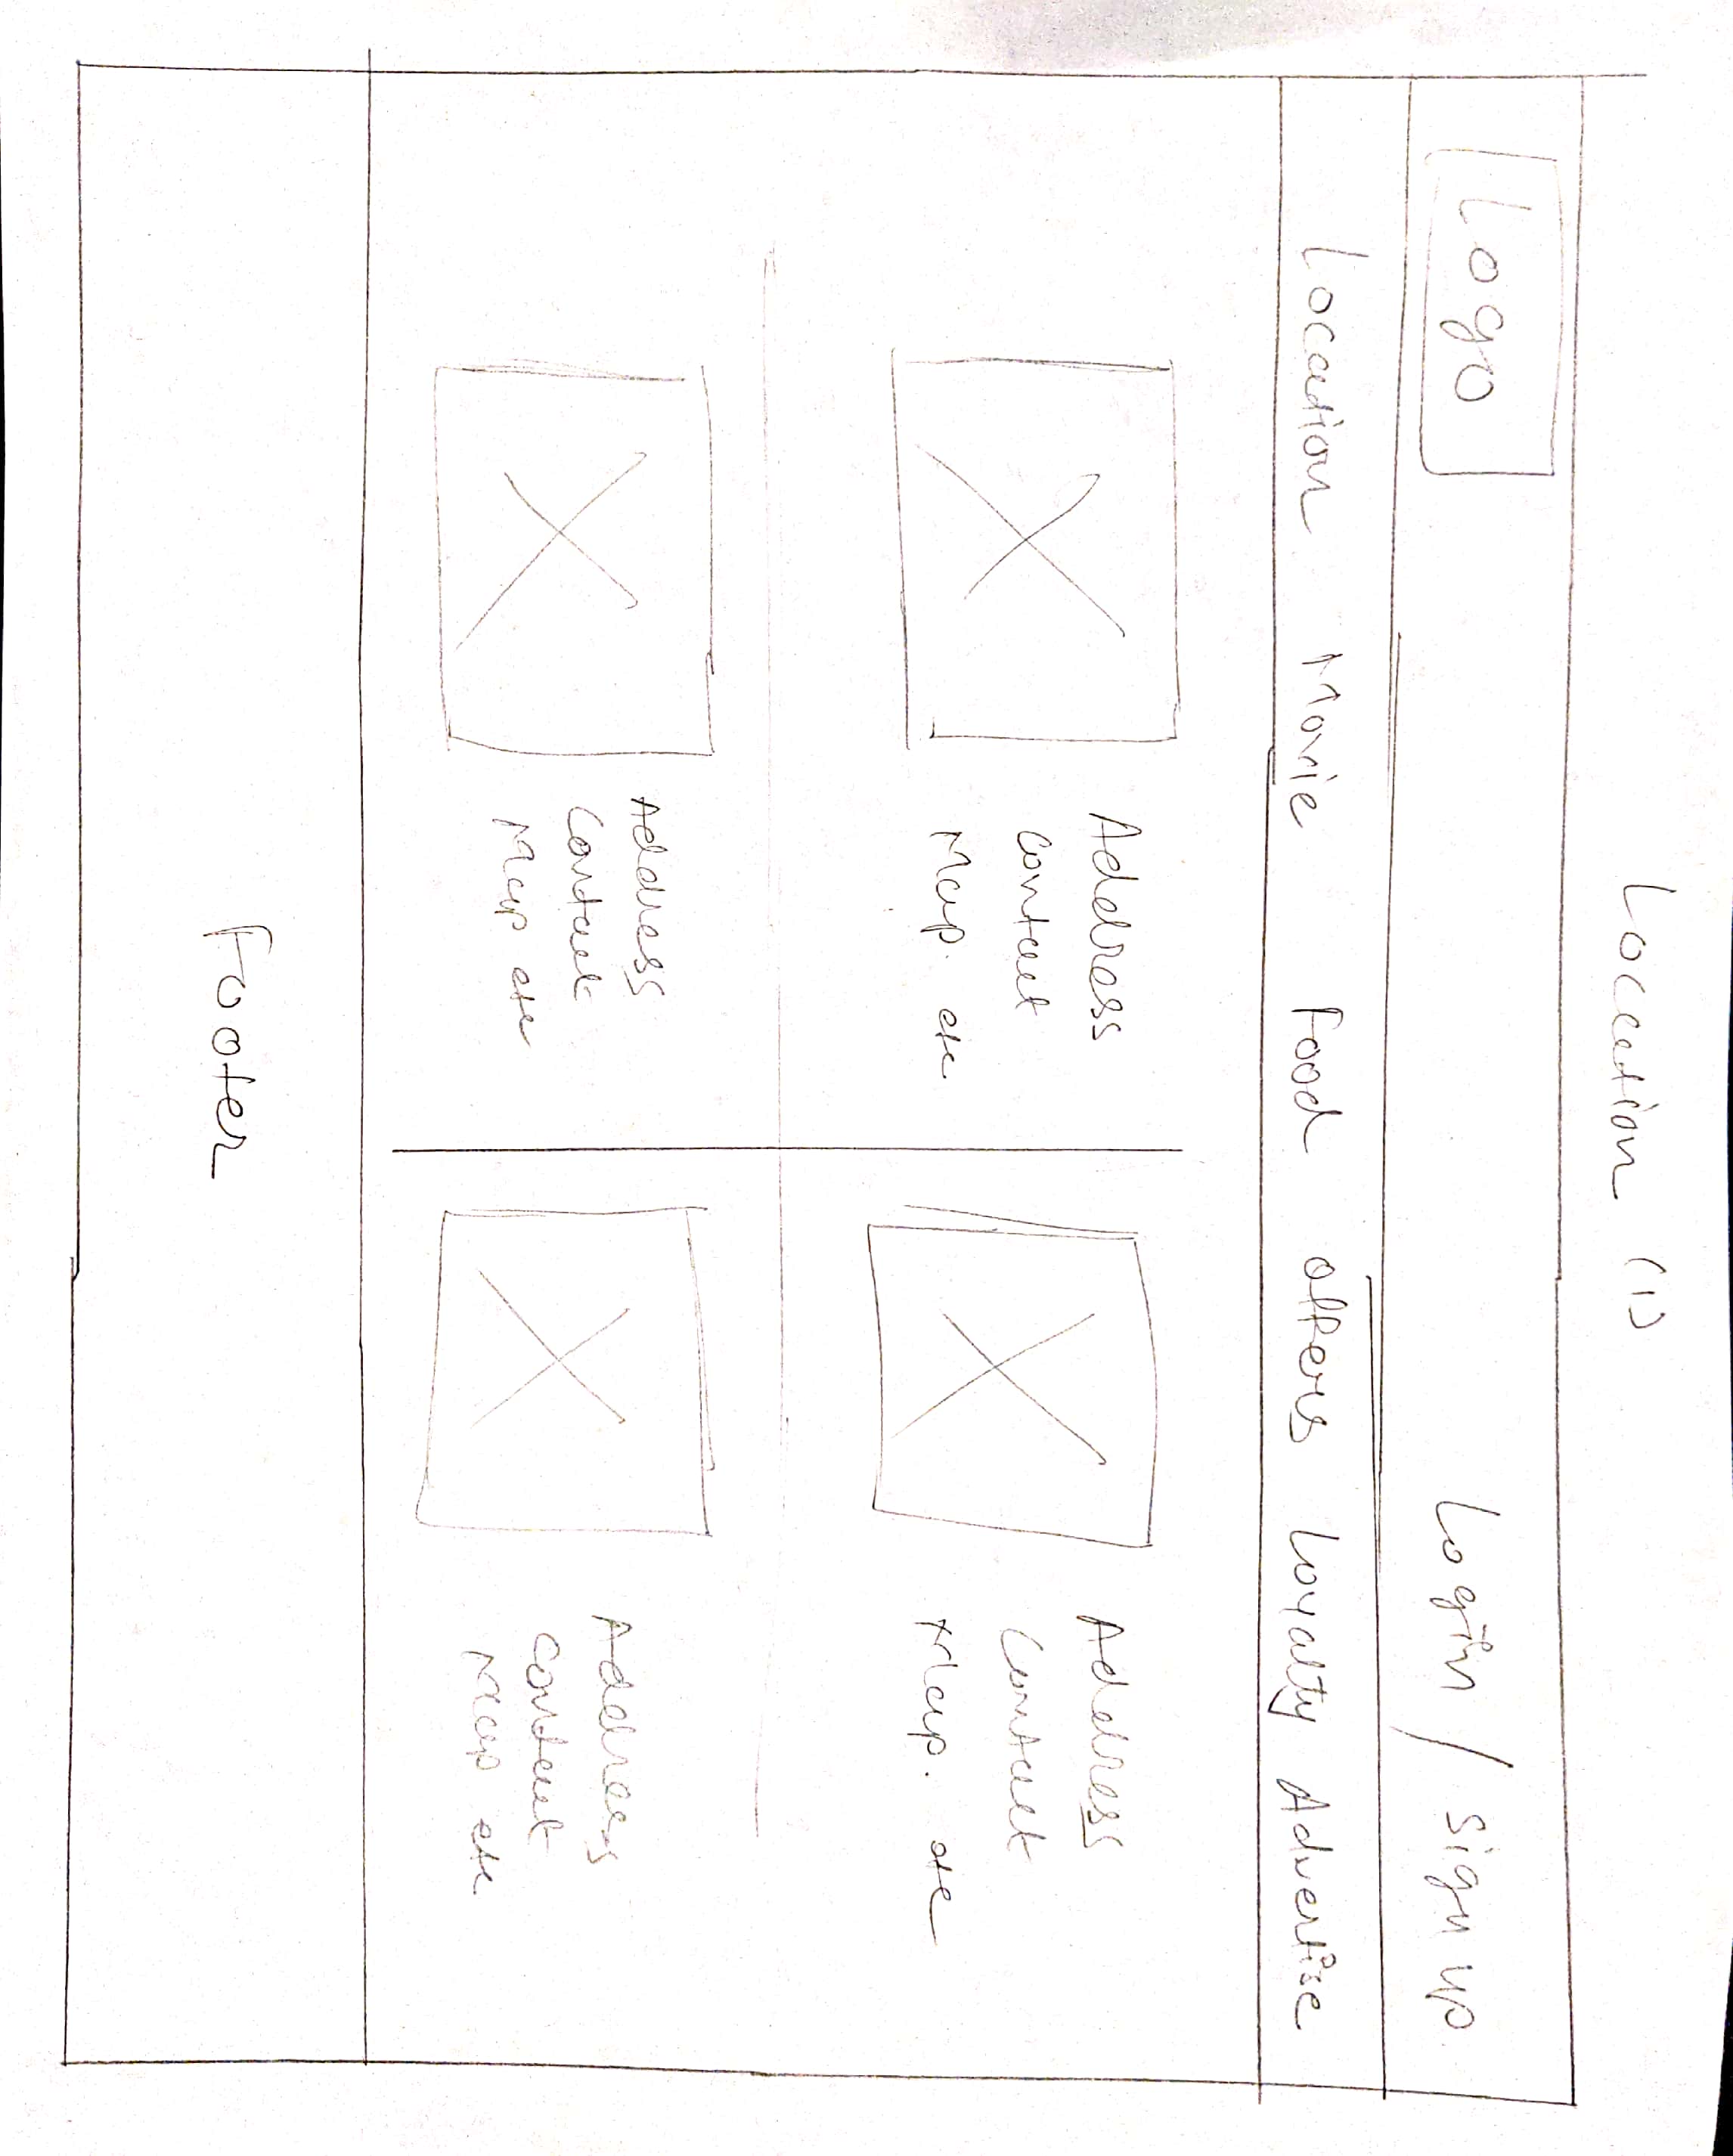 Location (1)
Logo
Login / Sign up.
Location Movie Food offers Loyalty Advertise
Address
Contact
Map. etc
Address
Contact
Map. etc
Address
Contact
Map etc
Address
Contact
Map etc
Footer